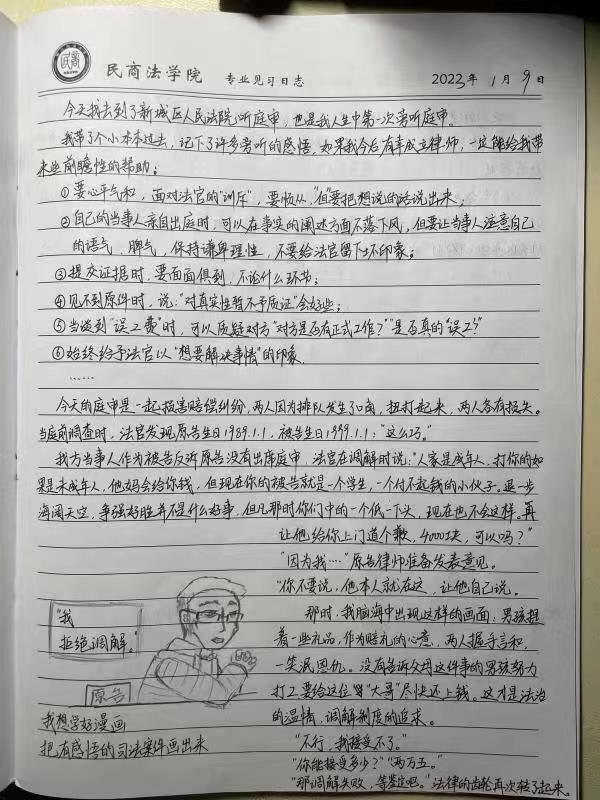 民商法学院 专业见习日志 2023年1月9日
今天我去到了新城区人民法院听庭审，也是我人生中第一次旁听庭审。
我带了个小本本过去，记下了许多旁听的感悟，如果我今后有幸成立律师，一定能给我带
来些前瞻性的帮助：
①要心平气和，面对法官的"训斥"，要顺从，"但"要把想说的话说出来；
②自己的当事人亲自出庭时，可以在事实的阐述方面不落下风，但要让当事人注意自己
的语气，脾气，保持谦卑理性，不要给法官留下坏印象；
③提交证据时，要面面俱到，不论什么环节；
④见不到原件时，说："对真实性暂不予质证"会好些；
⑤当谈到"误工费"时，可以质疑对方"对方是否有正式工作？""是否真的"误工？"
⑥始终给予法官以"想要解决事情"的印象.
……
今天的庭审是一起损害赔偿纠纷，两人因为排队发生了口角，扭打起来，两人各有损失。
当庭前调查时，法官发现原告生日1989.1.1，被告生日1999.1.1："这么巧。"
我方当事人作为被告反诉原告没有出席庭审，法官在调解时说："人家是成年人，打你的如
果是未成年人，他妈会给你钱，但现在你的被告就是一个学生，一个付不起钱的小伙子。退一步
海阔天空，争强好胜并不是什么好事，但凡那时你们中的一个低一下头，现在也不会这样。再
让他给你上门道个歉，4000块，可以吗？"
"因为我……"原告律师准备发表意见。
"你不要说，他本人就在这，让他自己说。
那时，我脑海中出现这样的画面：男孩提
着一些礼品，作为赔礼的心意，两人握手言和，
一笑泯恩仇。没有告诉父母这件事的男孩努力
打工要给这位"大哥"尽快还上钱。这才是法治
的温情，调解制度的追求。
"不行，我接受不了。"
"你能接受多少？""两万五。"
"那调解失败，等鉴定吧。"法律的齿轮再次转了起来。
"我
拒绝调解。"
原告
我想学好漫画
把有感悟的司法案件画出来